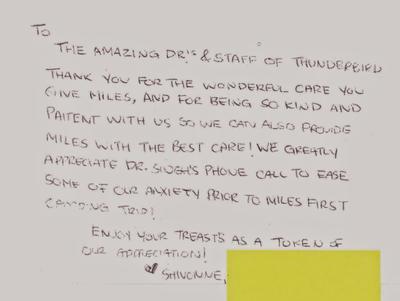 TO
THE AMAZING DR'S & STAFF OF THUNDERBIRD
THANK YOU FOR THE WONDERFUL CARE YOU
GIVE MILES, AND FOR BEING SO KIND AND
PAITENT WITH US SO WE CAN ALSO PROVIDE
MILES WITH THE BEST CARE! WE GREATLY
APPRECIATE DR. SINGH'S PHONE CALL TO EASE
SOME OF OUR ANXIETY PRIOR TO MILES FIRST
CAMPING TRIP!
ENJOY YOUR TREATS AS A TOKEN OF
OUR APPRECIATION!
SHIVONNE,